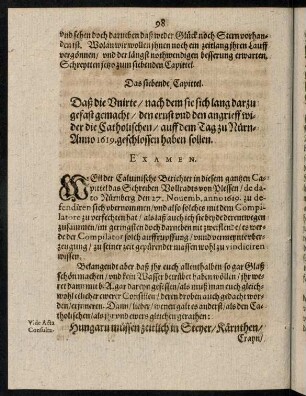 98
vnd sehen doch darneben daß weder Glück noch Stern vorhan-
den ist. Wolan wir wollen jhnen noch ein zeitlang jhren Lauff
vergönnen / vnd der längst nothwendigen besserung erwarten,
Schreytten jetzo zum siebenden Capittel.
Das siebende Capittel.
Daß die Vnirte / nach dem sie sich lang darzu
gefast gemacht / den ernst vnd den angrieff wi-
der die Catholischen / auff dem Tag zu Nürn-
Anno 1619. geschlossen haben sollen.
EXAMEN.
WEil der Caluinische Berichter in diesem gantzen Ca-
pittel das Schreiben Vollradts von Plessen / de da-
to Nürnberg den 27. Nouemb. anno 1619. zu de-
fendiren sich vbernommen / vnd also solches mit dem Compi-
latore zu verfechten hat / als laß auch ich sie beyde derentwegen
zusammen / im geringsten doch darneben nit zweiflende / es wer-
de der Compilator solch auffrupffung / vnd vermeynte vberzeu-
gung / zu seiner zeit gepürender massen wohl zu vindiciren
wissen.
Belangendt aber daß jhr euch allenthalben so gar Glaß
schön machen / vnd kein Wasser betrübet haben wöllen / jhr wer-
det dann mit b. A. gar daryon gestossen / als muß man euch gleich-
wohl etlicher ewerer Consilien / deren droben auch gedacht wor-
den / erjnneren. Dann / lieber / wer vnter galtes anderst / als den Ca-
tholischen / als jhr vnd ewers gleichen gerathen:
Vide Acta
Consulta.
Hungarn müssen zeitlich in Steyer / Kärnthen /
Crayn /